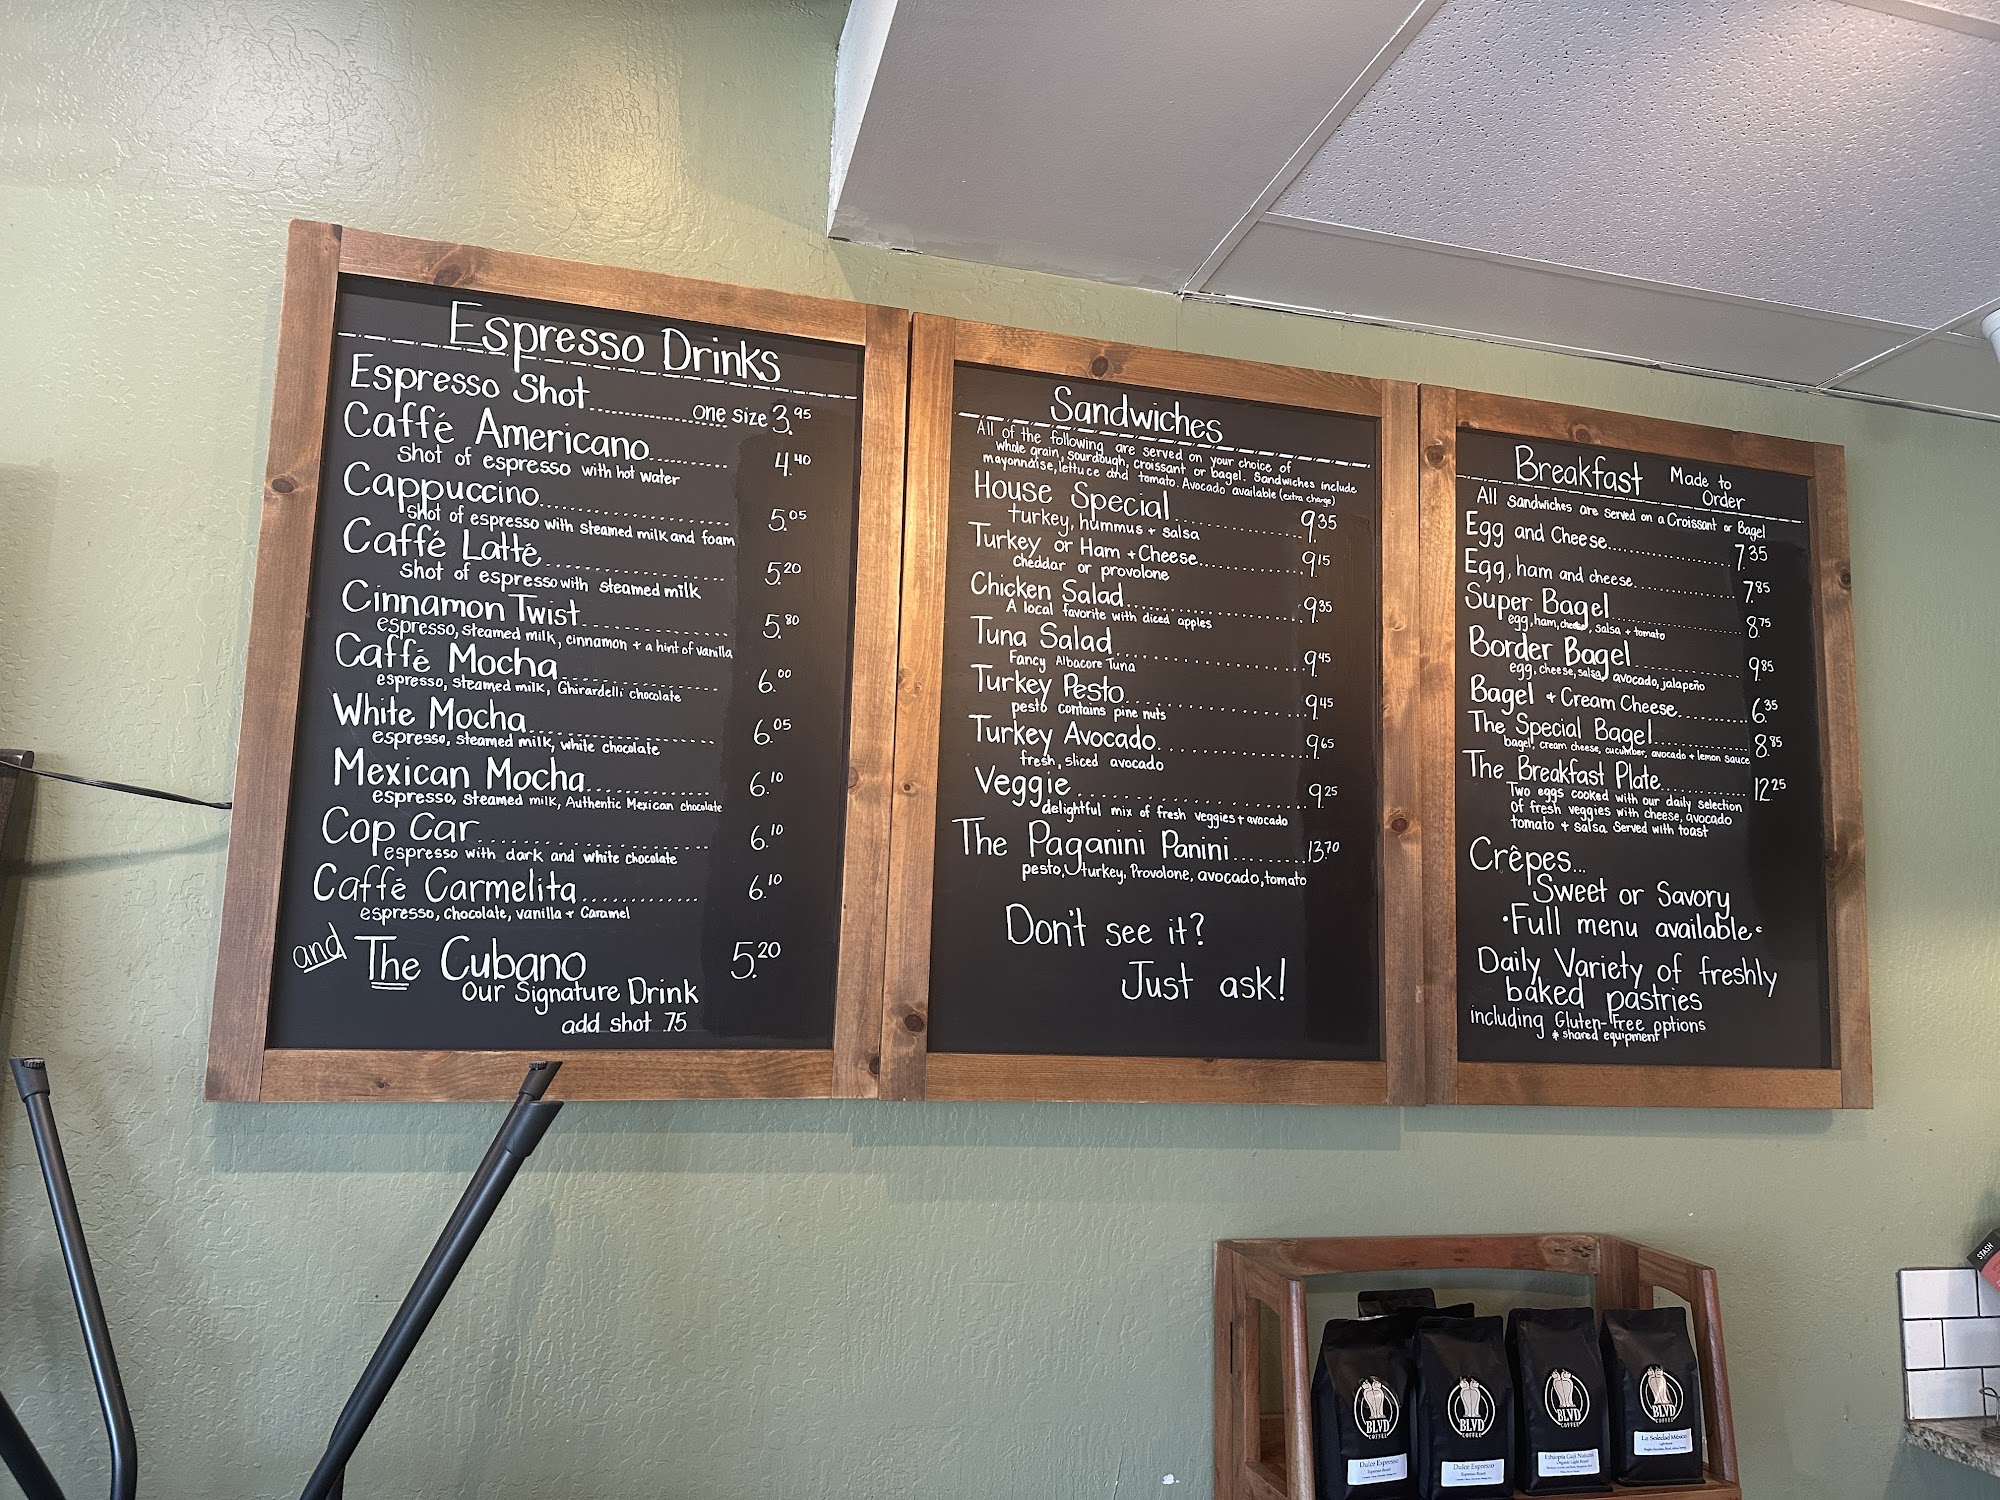 Espresso Drinks
Espresso Shot........one size 3.95
Caffé Americano........ 4.40
shot of espresso with hot water
Cappuccino........ 5.05
shot of espresso with steamed milk and foam
Caffé Latté........ 5.20
shot of espresso with steamed milk
Cinnamon Twist........ 5.80
espresso, steamed milk, cinnamon + a hint of vanilla
Caffé Mocha........ 6.00
espresso, steamed milk, Ghirardelli chocolate
White Mocha........ 6.05
espresso, steamed milk, white chocolate
Mexican Mocha........ 6.10
espresso, steamed milk, Authentic Mexican chocolate
Cop Car........ 6.10
espresso with dark and white chocolate
Caffé Carmelita........ 6.10
espresso, chocolate, vanilla + Caramel
and The Cubano 5.20
our Signature Drink
add shot .75
Sandwiches
All of the following are served on your choice of
whole grain, sourdough, croissant or bagel. Sandwiches include
mayonnaise, lettuce and tomato. Avocado available (extra charge)
House Special........ 9.35
turkey, hummus + salsa
Turkey or Ham + Cheese........ 9.15
cheddar or provolone
Chicken Salad........ 9.35
A local favorite with diced apples
Tuna Salad........ 9.45
Fancy Albacore Tuna
Turkey Pesto........ 9.45
pesto contains pine nuts
Turkey Avocado........ 9.65
fresh, sliced avocado
Veggie........ 9.25
delightful mix of fresh veggies + avocado
The Paganini Panini........ 13.70
pesto, turkey, Provolone, avocado, tomato
Don't see it?
Just ask!
Breakfast Made to Order
All Sandwiches are served on a Croissant or Bagel
Egg and Cheese........ 7.35
Egg, ham and cheese........ 7.85
Super Bagel........ 8.75
egg, ham, cheese, salsa + tomato
Border Bagel........ 9.85
egg, cheese, salsa, avocado, jalapeño
Bagel + Cream Cheese........ 6.35
The Special Bagel........ 8.85
bagel, cream cheese, cucumber, avocado + lemon sauce
The Breakfast Plate........ 12.25
Two eggs cooked with our daily selection
of fresh veggies with cheese, avocado
tomato + salsa. Served with toast
Crêpes...
Sweet or Savory
•Full menu available•
Daily Variety of freshly
baked pastries
including Gluten-Free options
* shared equipment
STASH
BLVD
COFFEE
Dulce Espresso
Espresso Roast
BLVD
COFFEE
Dulce Espresso
Espresso Roast
BLVD
COFFEE
Ethiopia Guji Natural
Organic Light Roast
BLVD
COFFEE
La Soledad México
Light Roast